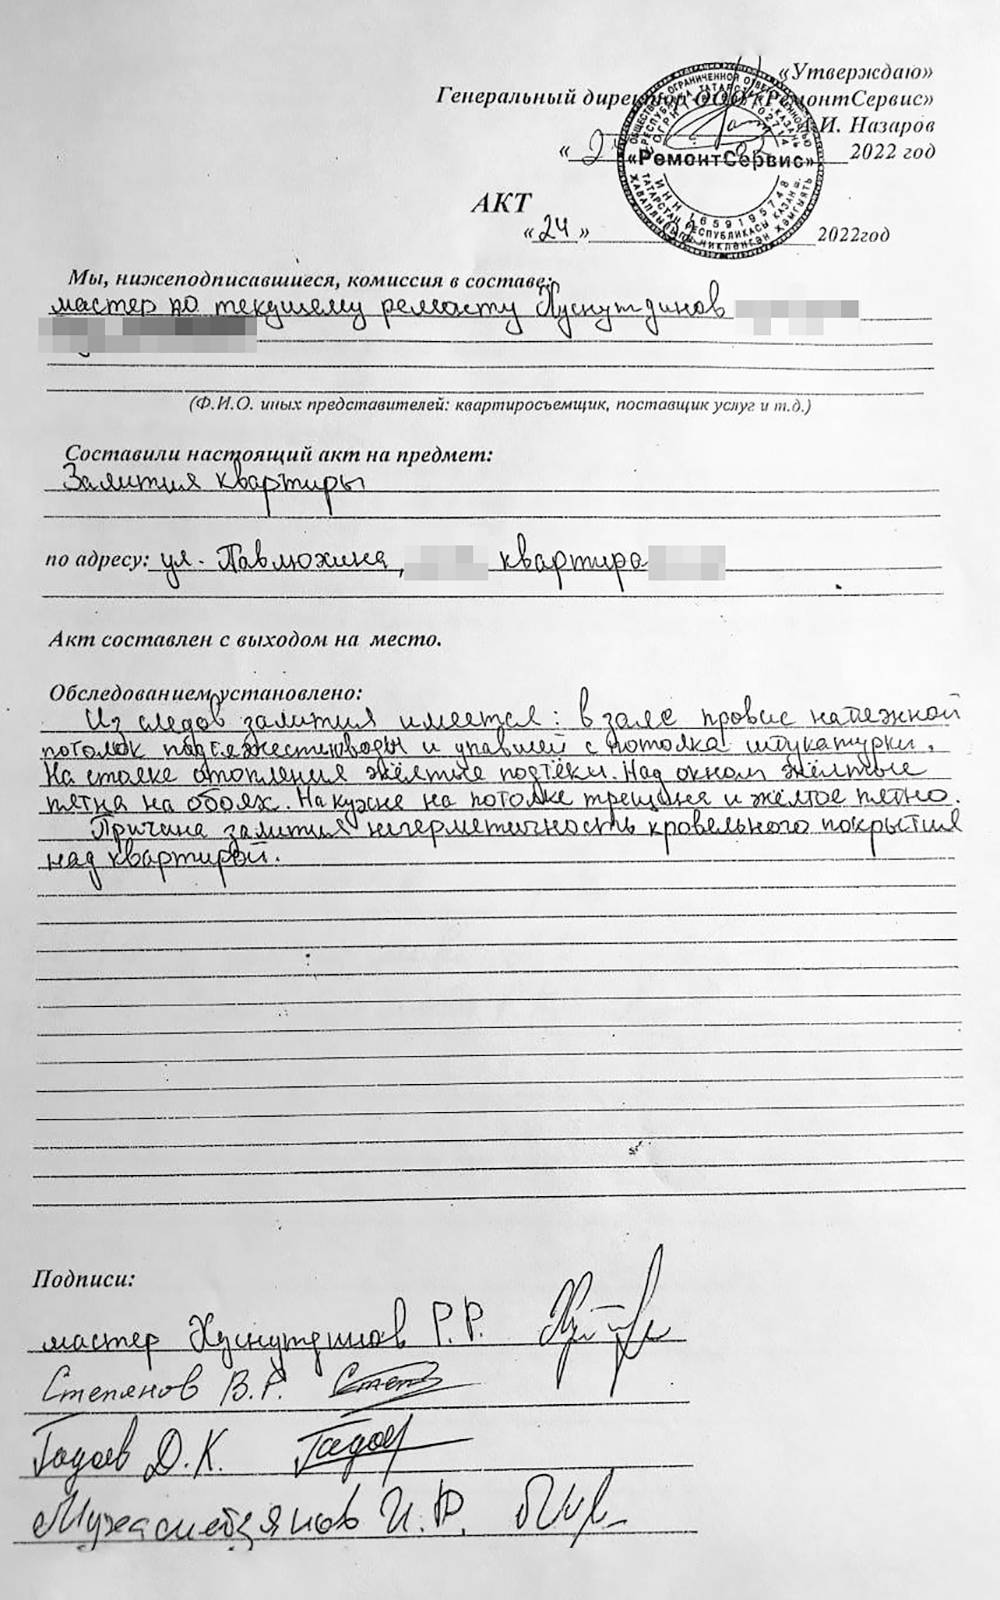 «Утверждаю»
Генеральный директор ООО «РемонтСервис»
А.И. Назаров
« 2 » 2022 год
«РемонтСервис»
ИНН 1659195748
АКТ
« 24 » 2022год
Мы, нижеподписавшиеся, комиссия в составе:
мастер по текущему ремонту Хуснутдинов
(Ф.И.О. иных представителей: квартиросъемщик, поставщик услуг и т.д.)
Составили настоящий акт на предмет:
Залития квартиры
по адресу: ул. Павлюхина, квартира
Акт составлен с выходом на место.
Обследованием установлено:
Из следов залития имеется: в зале провис натежной
потолок под тяжестью воды и упавшей с потолка штукатурки.
На стояке отопления жёлтые подтёки. Над окном жёлтые
пятна на обоях. На кухне на потолке трещина и жёлтое пятно.
Причина залития негерметичность кровельного покрытия
над квартирой.
Подписи:
мастер Хуснутдинов Р.Р.
Степанов В.Г.
Гадаев Д.К.
Мухаметзянов И.Ф.